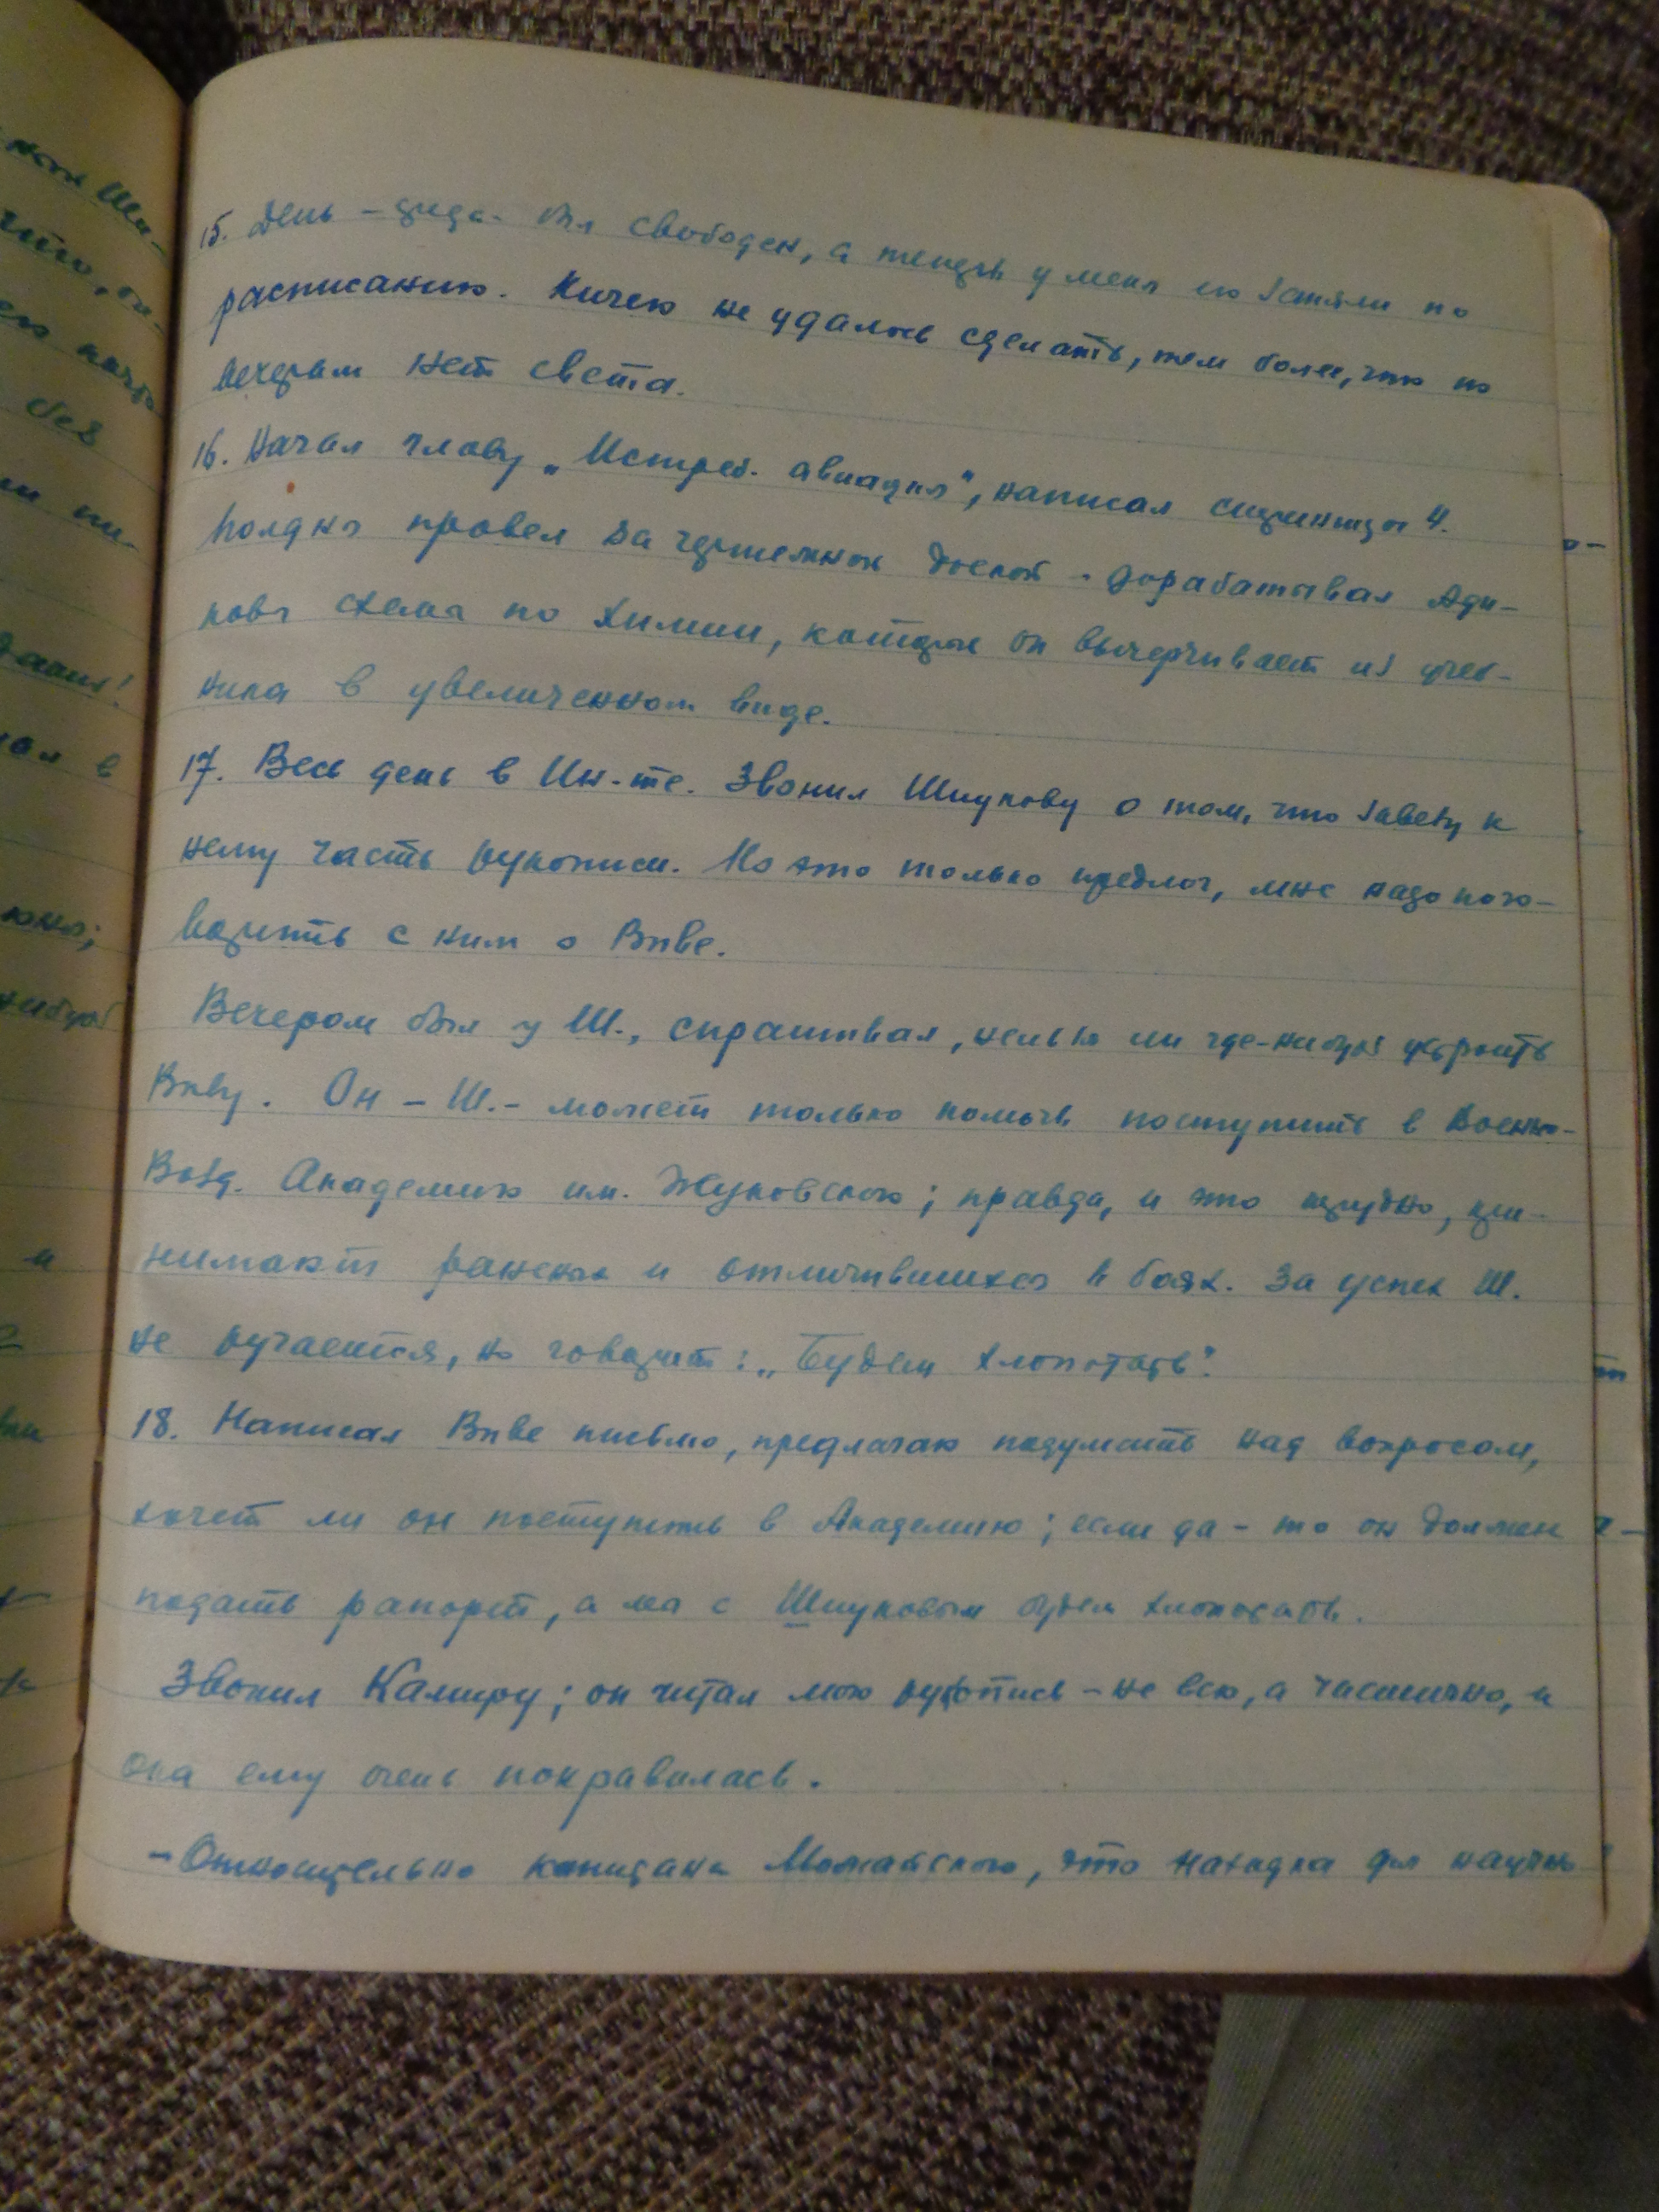 15. День - среда - был свободен, а теперь у меня его заняли по
расписанию. Ничего не удалось сделать, тем более, что по
вечерам нет света.
16. Начал главу „Истреб. авиация", написал страницы 4.
Полдня провел за чертежной доской - дорабатывал Ади-
ковы схемы по химии, которые он вычерчивает из учеб-
ника в увеличенном виде.
17. Весь день в Ин-те. Звонил Шиукову о том, что завезу к
нему часть рукописи. Но это только предлог, мне надо пого-
ворить с ним о Вивве.
Вечером был у Ш., спрашивал, нельзя ли где-нибудь устроить
Виву. Он - Ш. - может только помочь поступить в Военно-
Возд. Академию им. Жуковского; правда, и это трудно, при-
нимают раненых и отличившихся в боях. За успех Ш.
не ручается, но говорит: „Будем хлопотать".
18. Написал Виве письмо, предлагаю подумать над вопросом,
хочет ли он поступить в Академию; если да - то он должен
подать рапорт, а мы с Шиуковым будем хлопотать.
Звонил Камиру; он читал мою рукопись - не всю, а частично, и
она ему очень понравилась.
- Относительно капитана Можайского, это находка для научно